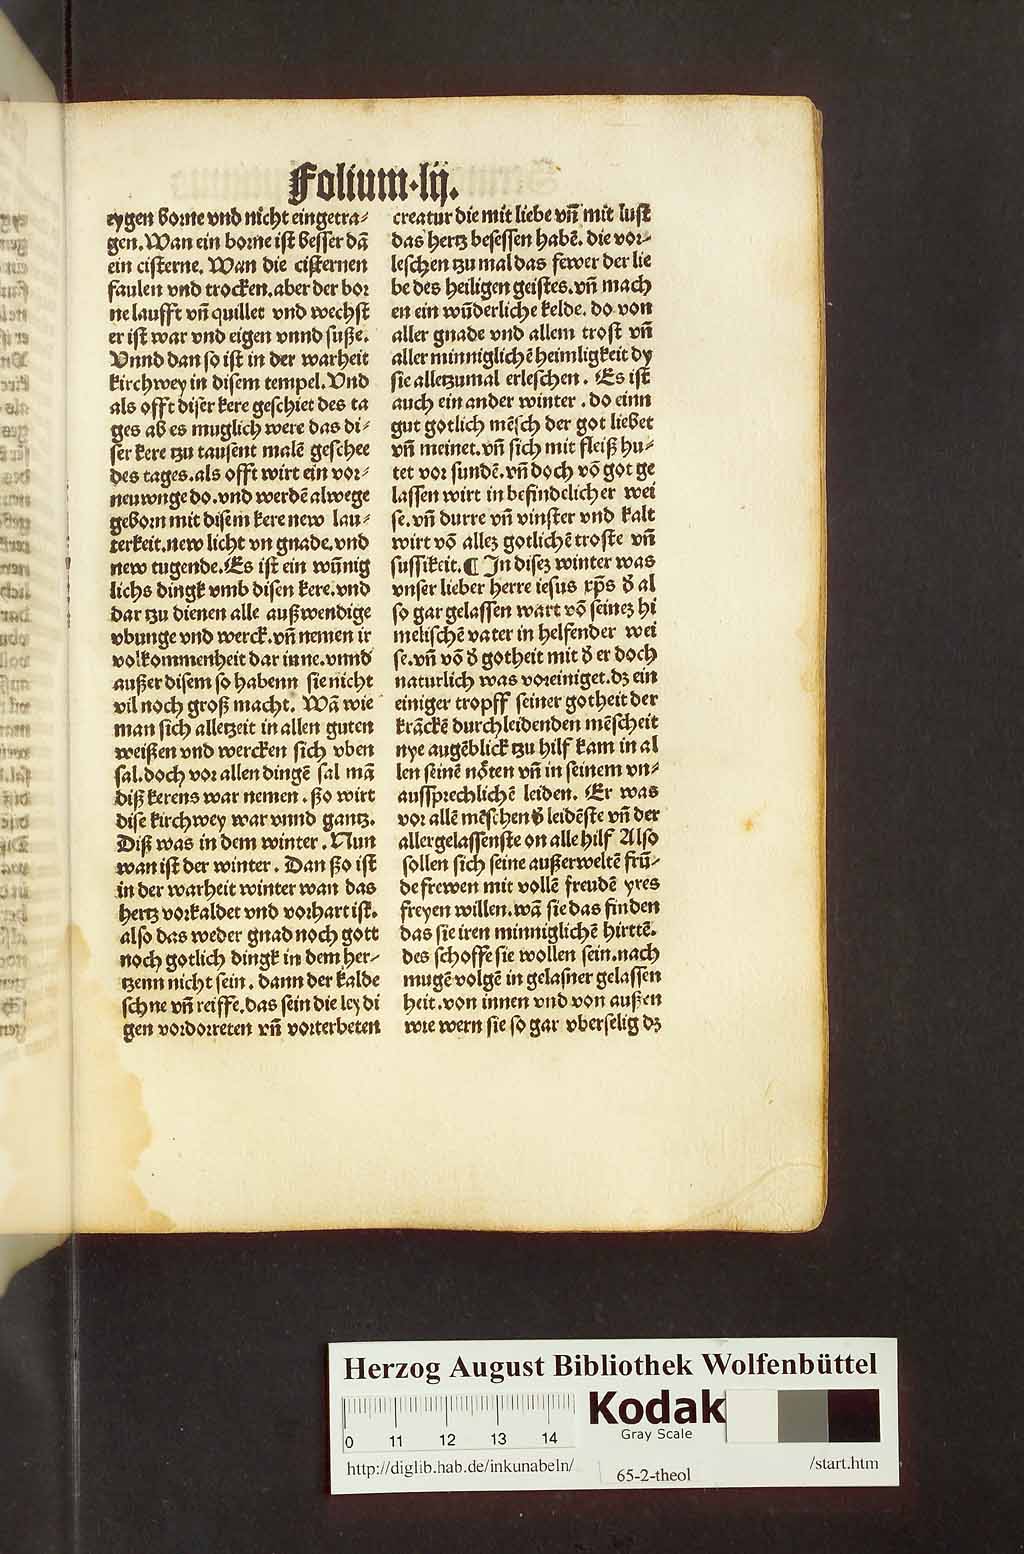 Folium·lij.
eygen borne vnd nicht eingetra⸗
gen. Wan ein borne ist besser dā
ein cisterne. Wan die cisternen
faulen vnd trocken. aber der bor
ne laufft vn̄ quillet vnd wechst
er ist war vnd eigen vnnd suße.
Vnnd dan so ist in der warheit
kirchwey in disem tempel. Vnd
als offt diser kere geschiet des ta
ges ab es muglich were das di⸗
ser kere tzu tausent malē geschee
des tages. als offt wirt ein vor⸗
neuwnge do. vnd werdē alwege
geborn mit disem kere new lau⸗
terkeit. new licht vn gnade. vnd
new tugende. Es ist ein wūnig
lichs dingk vmb disen kere. vnd
dar tzu dienen alle außwendige
vbunge vnd werck. vn̄ nemen ir
volkommenheit dar inne. vnnd
außer disem so habenn sie nicht
vil noch groß macht. Wā wie
man sich alletzeit in allen guten
weißen vnd wercken sich vben
sal. doch vor allen dingē sal mā
diß kerens war nemen. ßo wirt
dise kirchwey war vnnd gantz.
Diß was in dem winter. Nun
wan ist der winter. Dan ßo ist
in der warheit winter wan das
hertz vorkaldet vnd vorhart ist.
also das weder gnad noch gott
noch gotlich dingk in dem her⸗
tzenn nicht sein. dann der kalde
schne vn̄ reiffe. das sein die ley di
gen vordorreten vn̄ vorterbeten
creatur die mit liebe vn̄ mit lust
das hertz besessen habē. die vor⸗
leschen tzu mal das fewer der lie
be des heiligen geistes. vn̄ mach
en ein wūderliche kelde. do von
aller gnade vnd allem trost vn̄
aller minniglichē heimligkeit dy
sie alletzumal erleschen. Es ist
auch ein ander winter. do einn
gut gotlich mēsch der got liebet
vn̄ meinet. vn̄ sich mit fleiß hu⸗
tet vor sundē. vn̄ doch vō got ge
lassen wirt in befindelicher wei
se. vn̄ durre vn̄ vinster vnd kalt
wirt vō allez gotlichē troste vn̄
sussikeit. ¶ In disez winter was
vnser lieber herre iesus xp̄s ď al
so gar gelassen wart vō seinez hi
melischē vater in helfender wei
se. vn̄ vō ď gotheit mit ď er doch
naturlich was voreiniget. dz ein
einiger tropff seiner gotheit der
krāckē durchleidenden mēscheit
nye augēblick tzu hilf kam in al
len seinē nöten vn̄ in seinem vn⸗
aussprechlichē leiden. Er was
vor allē mēschen ď leidēste vn̄ der
allergelassenste on alle hilf Also
sollen sich seine außerweltē frū⸗
de frewen mit vollē freudē yres
freyen willen. wā sie das finden
das sie iren minniglichē hirttē.
des schoffe sie wollen sein. nach
mugē volgē in gelasner gelassen
heit. von innen vnd von außen
wie wern sie so gar vberselig dz
Herzog August Bibliothek Wolfenbüttel
Kodak
Gray Scale
0 11 12 13 14
http://diglib.hab.de/inkunabeln/ 65-2-theol /start.htm